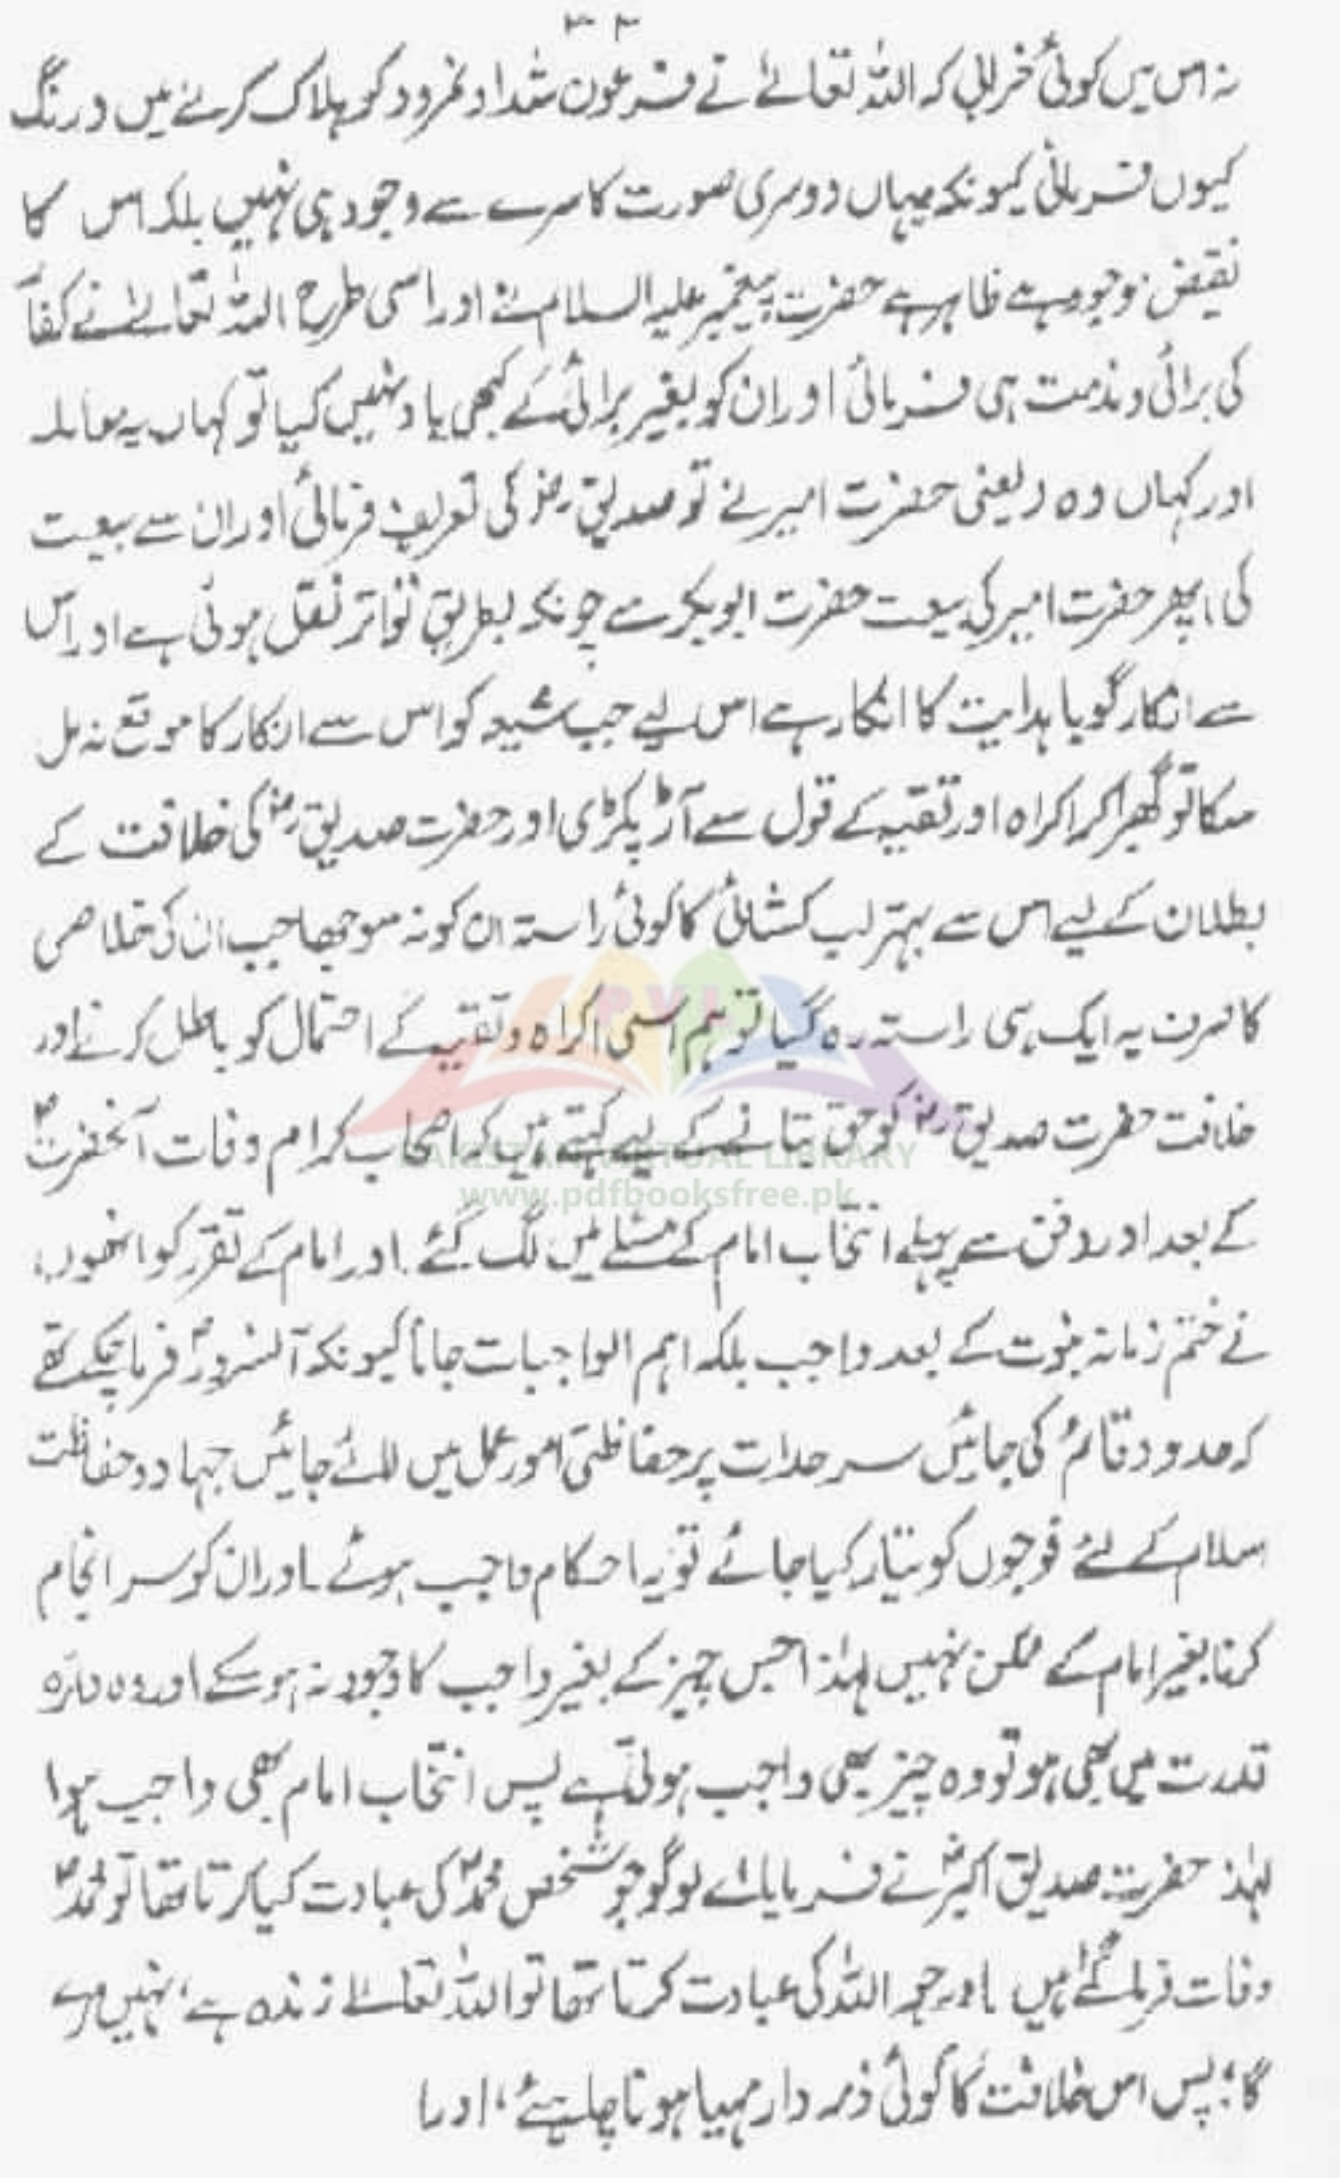 ۳۴
نہ اس میں کوئی خرابی کہ اللہ تعالےٰ نے فرعون شداد و نمرود کو ہلاک کرنے میں درنگ
کیوں فرمائی کیونکہ یہاں دوسری صورت کا سرے سے وجود ہی نہیں بلکہ اس کا
نقیض موجود ہے ظاہر ہے حضرت پیغمبر علیہ السلام نے اور اسی طرح اللہ تعالےٰ نے کفار
کی برائی و مذمت ہی فرمائی اور ان کو بغیر برائی کے کبھی یاد نہیں کیا تو کہاں یہ معاملہ
اور کہاں وہ (یعنی حضرت امیر نے تو صدیق رضؓ کی تعریف فرمائی اور ان سے بیعت
کی) پھر حضرت امیر کی بیعت حضرت ابوبکر سے چونکہ بطریق تواتر نقل ہوئی ہے اور اس
سے انکار گویا ہدایت کا انکار ہے اس لیے جب شیعہ کو اس سے انکار کا موقع نہ مل
سکا تو گھبرا کر اکراہ اور تقیہ کے قول سے آڑ پکڑی اور حضرت صدیق رضؓ کی خلافت کے
بطلان کے لیے اس سے بہتر لب کشائی کا کوئی راستہ ان کو نہ سوجھا جب ان کی خلاصی
کا صرف یہ ایک ہی راستہ رہ گیا تو ہم اسی اکراہ و تقیہ کے احتمال کو باطل کرنے اور
خلافت حضرت صدیق رضؓ کو حق بتانے کے لیے کہتے ہیں کہ اصحاب کرام وفات آنحضرتؐ
کے بعد اور دفن سے پہلے انتخاب امام کے مسئلے میں لگ گئے۔ اور امام کے تقرر کو انھوں
نے ختم زمانہ نبوت کے بعد واجب بلکہ اہم الواجبات جانا کیونکہ آنسرورؐ فرما چکے تھے
کہ حدود قائم کی جائیں سرحدات پر حفاظتی امور عمل میں لائے جائیں جہاد و حفاظت
اسلام کے لئے فوجوں کو تیار کیا جائے تو یہ احکام واجب ہوئے۔ اور ان کو سر انجام
کرنا بغیر امام کے ممکن نہیں لہٰذا جس چیز کے بغیر واجب کا وجود نہ ہو سکے اور وہ دائرہ
قدرت میں بھی ہو تو وہ چیز بھی واجب ہوتی ہے پس انتخاب امام بھی واجب ہوا
لہٰذا حضرت صدیق اکبرؓ نے فرمایا اے لوگو جو شخص محمدؐ کی عبادت کیا کرتا تھا تو محمدؐ
وفات فرما گئے ہیں۔ اور جو اللہ کی عبادت کرتا تھا تو اللہ تعالےٰ زندہ ہے، نہیں مرے
گا، پس اس خلافت کا کوئی ذمہ دار مہیا ہونا چاہیئے، اور ا
PVL
PAKISTAN VIRTUAL LIBRARY
www.pdfbooksfree.pk